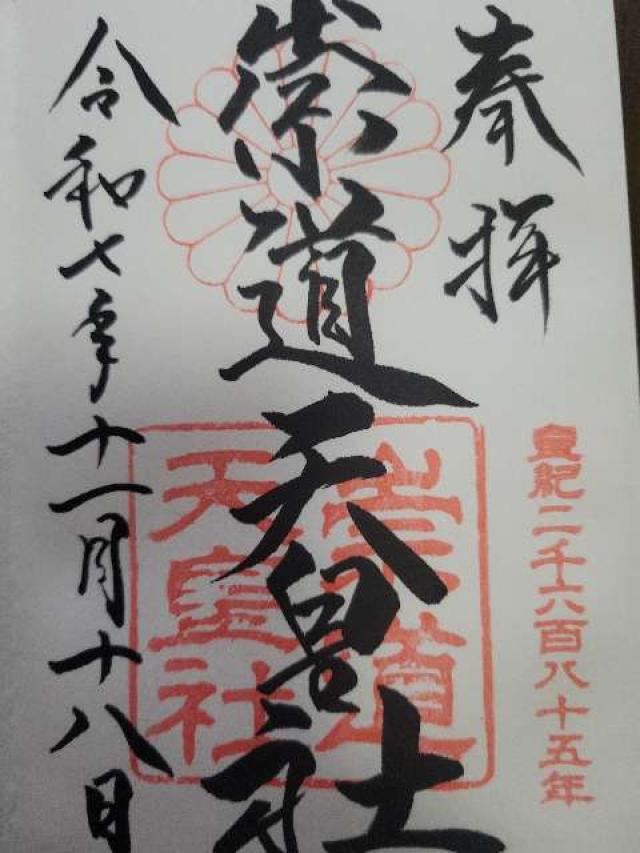 奉拝
皇紀二千六百八十五年
崇道天皇社
崇道
天皇社
令和七年十一月十八日